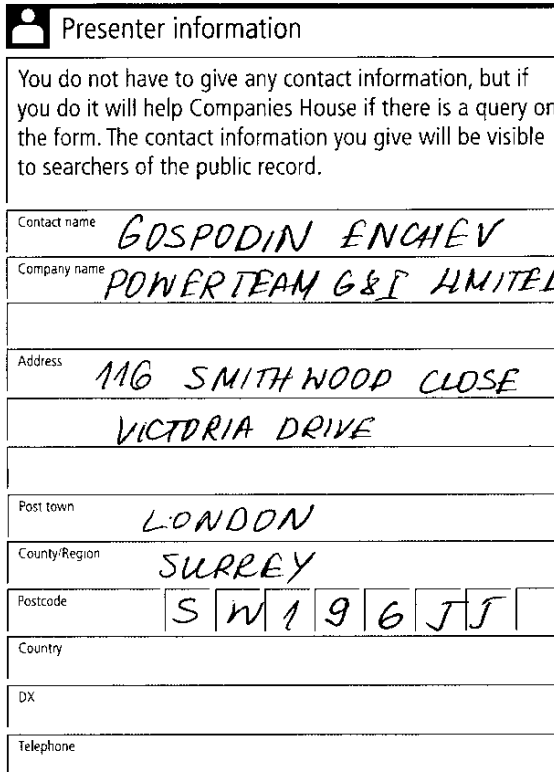 Presenter information
You do not have to give any contact information, but if
you do it will help Companies House if there is a query on
the form. The contact information you give will be visible
to searchers of the public record.
Contact name GOSPODIN ENCHEV
Company name POWERTEAM G&I LIMITED
Address 116 SMITHWOOD CLOSE
VICTORIA DRIVE
Post town LONDON
County/Region SURREY
Postcode SW196JJ
Country
DX
Telephone